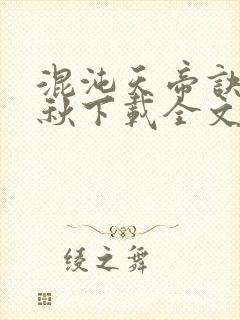 混沌天帝訣
秋下載全文
綾之舞